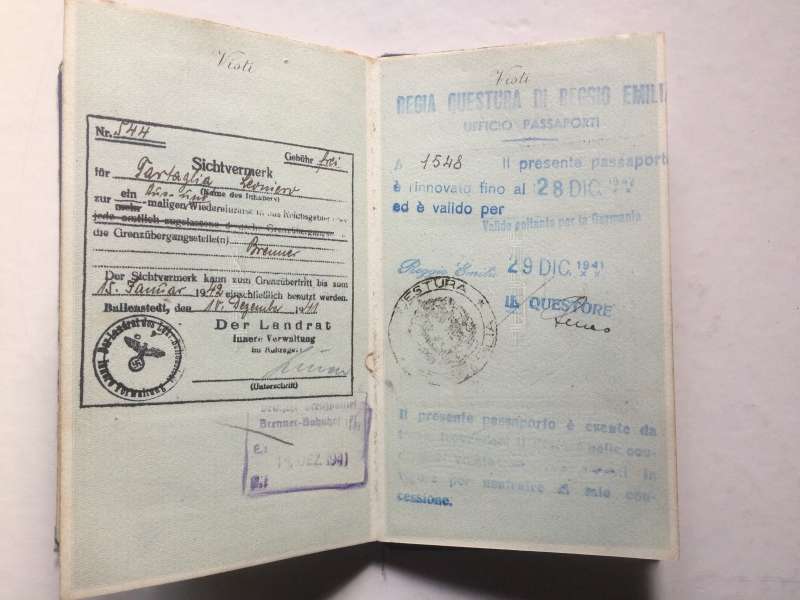 Visti
Nr. 544
Gebühr frei
Sichtvermerk
für Tartaglia
(Name des Inhabers)
zur ein mehr-maligen Wiedereinreise in das Reichsgebiet über
jede amtlich zugelassene deutsche Grenzübergangsstelle
die Grenzübergangsstelle(n) Brenner
Der Sichtvermerk kann zum Grenzübertritt bis zum
15. Januar 1942 einschließlich benutzt werden.
Ballenstedt, den 10. Dezember 1941
Der Landrat
Innere Verwaltung
Im Auftrage:
(Unterschrift)
Brenner-Bahnhof
DEZ. 1941
Visti
REGIA QUESTURA DI REGGIO EMILIA
UFFICIO PASSAPORTI
1548 Il presente passaporto
è rinnovato fino al 28 DIC.
ed è valido per
Valido soltanto per la Germania
Reggio Emilia 29 DIC. 1941
IL QUESTORE
QUESTURA
Il presente passaporto è esente da
cessione.